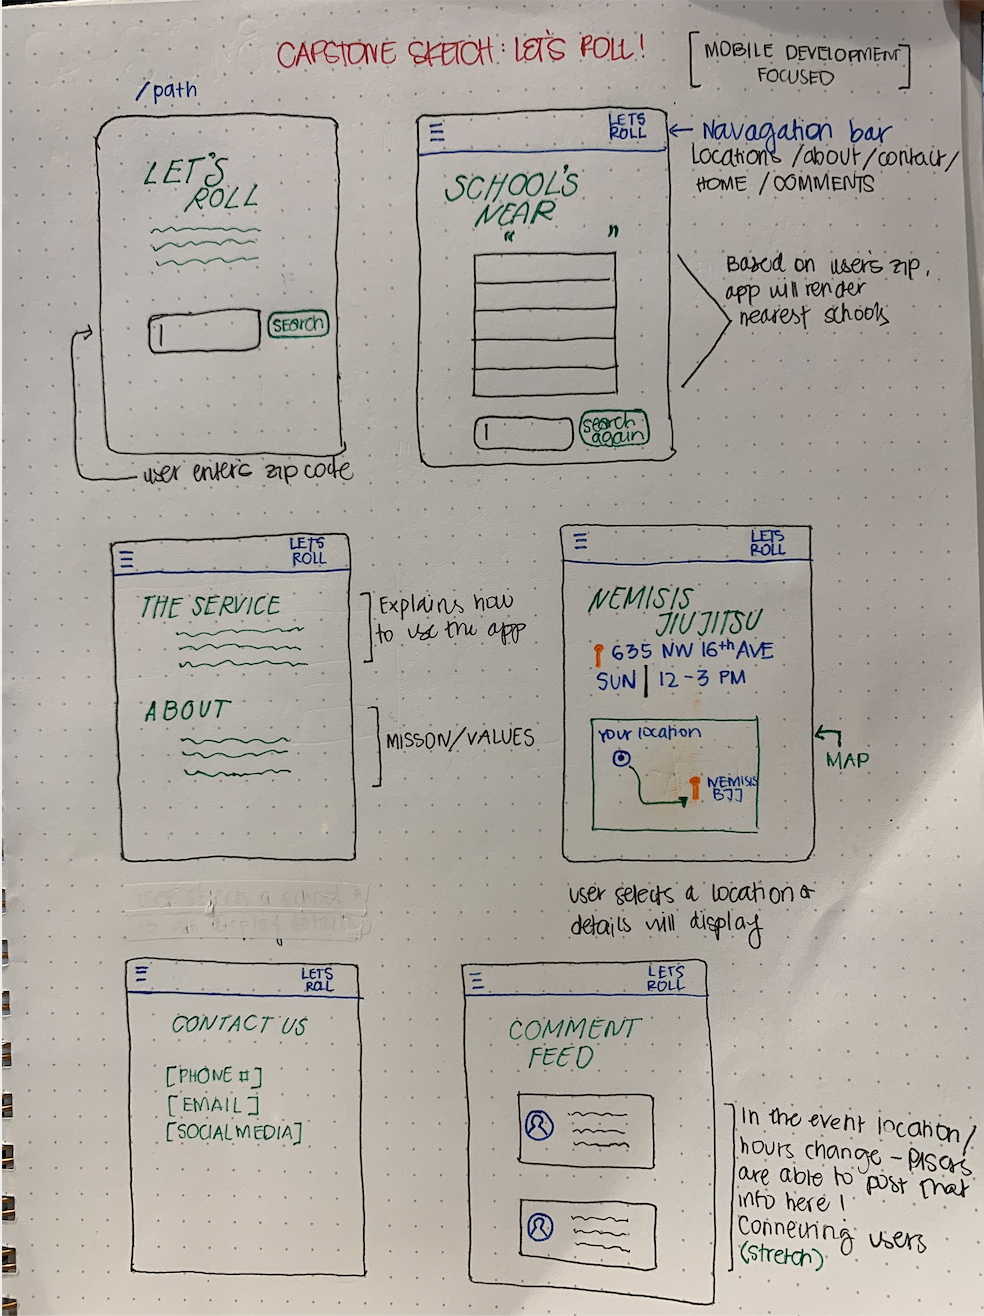 CAPSTONE SKETCH: LET'S ROLL!
[MOBILE DEVELOPMENT
FOCUSED]
/path
LET'S
ROLL
search
user enters zip code
LETS
ROLL
Navagation bar
Locations/about/contact/
HOME/COMMENTS
SCHOOL'S
NEAR
" "
search
again
Based on users zip,
app will render
nearest schools
LETS
ROLL
THE SERVICE
ABOUT
Explains how
to use the app
MISSON/VALUES
LETS
ROLL
NEMISIS
JIUJITSU
635 NW 16th AVE
SUN | 12-3 PM
your location
NEMISIS
BJJ
MAP
user selects a location &
details will display
LETS
ROLL
CONTACT US
[PHONE #]
[EMAIL]
[SOCIAL MEDIA]
LETS
ROLL
COMMENT
FEED
In the event location/
hours change -
are able to post that
info here!
Connecting users
(stretch)